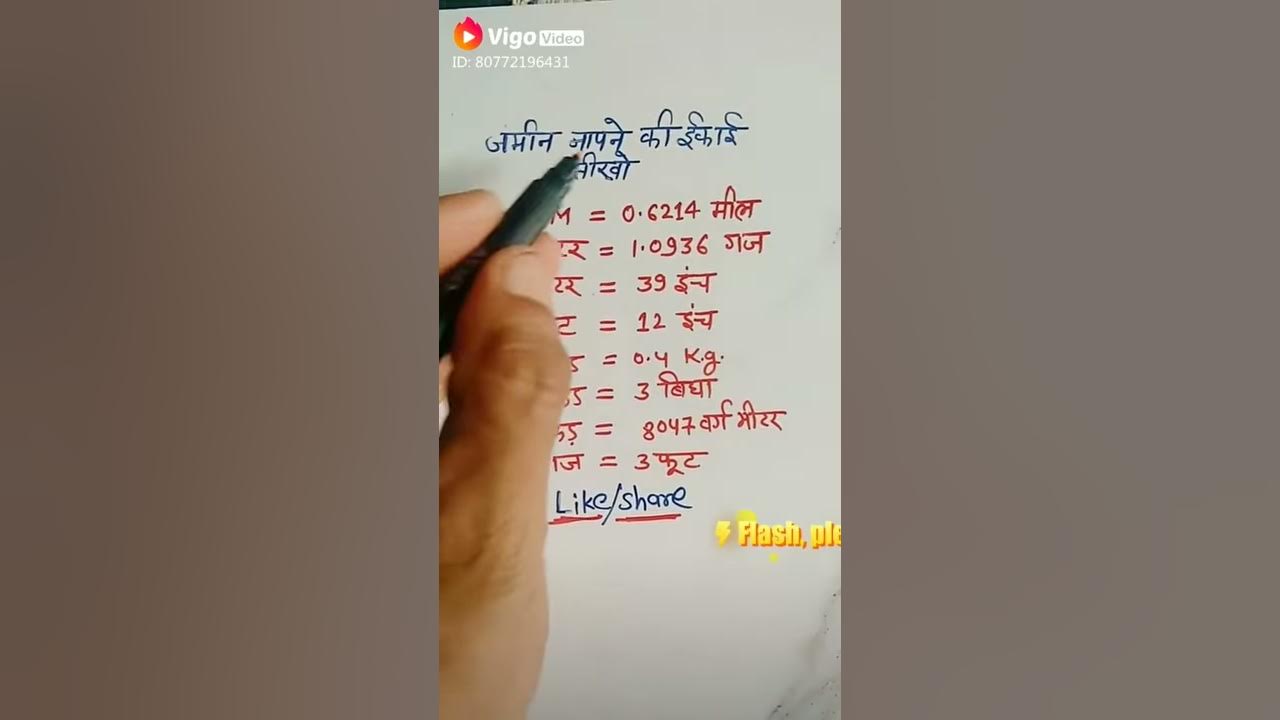 Vigo Video
ID: 80772196431
जमीन नापने की ईकाई
सीखो
M = 0.6214 मील
टर = 1.0936 गज
टर = 39 इंच
ट = 12 इंच
= 0.4 K.g.
कड = 3 बिघा
कड़ = 8047 वर्ग मीटर
गज = 3 फूट
Like/share
Flash, ple